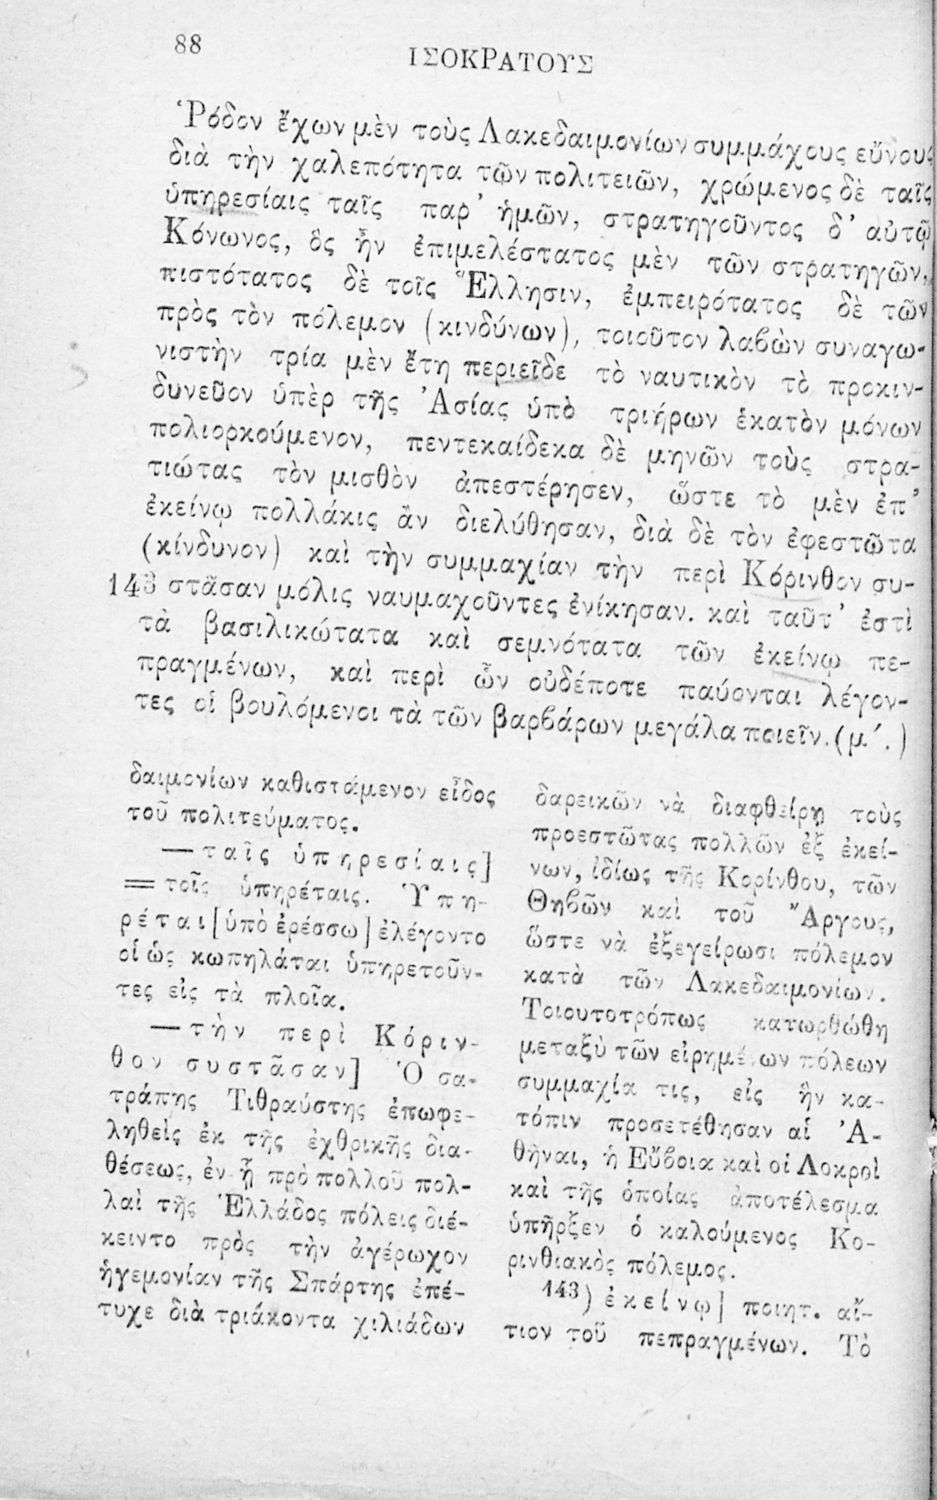 88
ΙΣΟΚΡΑΤΟΥΣ
Ῥόδον ἔχων μὲν τοὺς Λακεδαιμονίων συμμάχους εὔνους
διὰ τὴν χαλεπότητα τῶν πολιτειῶν, χρώμενος δὲ ταῖς
ὑπηρεσίαις ταῖς παρ’ ἡμῶν, στρατηγοῦντος δ’ αὐτῷ
Κόνωνος, ὃς ἦν ἐπιμελέστατος μὲν τῶν στρατηγῶν,
πιστότατος δὲ τοῖς Ἕλλησιν, ἐμπειρότατος δὲ τῶν
πρὸς τὸν πόλεμον (κινδύνων), τοιοῦτον λαβὼν συναγω-
νιστὴν τρία μὲν ἔτη περιεῖδε τὸ ναυτικὸν τὸ προκιν-
δυνεῦον ὑπὲρ τῆς Ἀσίας ὑπὸ τριήρων ἑκατὸν μόνων
πολιορκούμενον, πεντεκαίδεκα δὲ μηνῶν τοὺς στρα-
τιώτας τὸν μισθὸν ἀπεστέρησεν, ὥστε τὸ μὲν ἐπ’
ἐκείνῳ πολλάκις ἂν διελύθησαν, διὰ δὲ τὸν ἐφεστῶτα
(κίνδυνον) καὶ τὴν συμμαχίαν τὴν περὶ Κόρινθον συ-
143 στᾶσαν μόλις ναυμαχοῦντες ἐνίκησαν. καὶ ταῦτ’ ἐστὶ
τὰ βασιλικώτατα καὶ σεμνότατα τῶν ἐκείνῳ πε-
πραγμένων, καὶ περὶ ὧν οὐδέποτε παύονται λέγον-
τες οἱ βουλόμενοι τὰ τῶν βαρβάρων μεγάλα ποιεῖν.(μ΄.)
δαιμονίων καθιστάμενον εἶδος
τοῦ πολιτεύματος.
— ταῖς ὑπηρεσίαις]
= τοῖς ὑπηρέταις. Ὑπη-
ρέται [ὑπὸ ἐρέσσω] ἐλέγοντο
οἱ ὡς κωπηλάται ὑπηρετοῦν-
τες εἰς τὰ πλοῖα.
— τὴν περὶ Κόριν-
θον συστᾶσαν] Ὁ σα-
τράπης Τιθραύστης ἐπωφε-
ληθεὶς ἐκ τῆς ἐχθρικῆς δια-
θέσεως, ἐν ᾗ πρὸ πολλοῦ πολ-
λαὶ τῆς Ἑλλάδος πόλεις διέ-
κειντο πρὸς τὴν ἀγέρωχον
ἡγεμονίαν τῆς Σπάρτης ἐπέ-
τυχε διὰ τριάκοντα χιλιάδων
δαρεικῶν νὰ διαφθείρῃ τοὺς
προεστῶτας πολλῶν ἐξ ἐκεί-
νων, ἰδίως τῆς Κορίνθου, τῶν
Θηβῶν καὶ τοῦ Ἄργους,
ὥστε νὰ ἐξεγείρωσι πόλεμον
κατὰ τῶν Λακεδαιμονίων.
Τοιουτοτρόπως κατωρθώθη
μεταξὺ τῶν εἰρημένων πόλεων
συμμαχία τις, εἰς ἣν κα-
τόπιν προσετέθησαν αἱ Ἀ-
θῆναι, ἡ Εὔβοια καὶ οἱ Λοκροὶ
καὶ τῆς ὁποίας ἀποτέλεσμα
ὑπῆρξεν ὁ καλούμενος Κο-
ρινθιακὸς πόλεμος.
143) ἐκείνῳ] ποιητ. αἴ-
τιον τοῦ πεπραγμένων. Τὸ